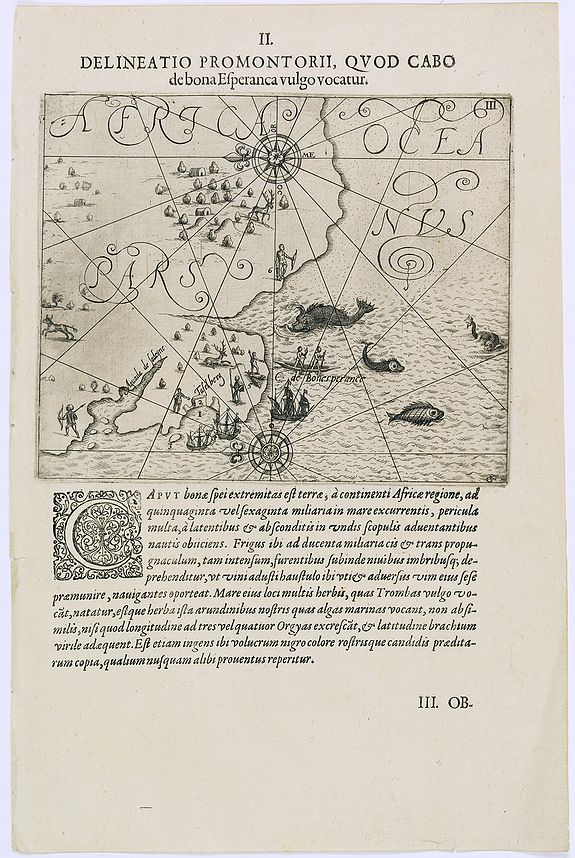 II.
DELINEATIO PROMONTORII, QVOD CABO
de bona Esperanca vulgo vocatur.
III
AFRICA
OCEA
OR
ME
OC
NVS
PARS
Tafelberg
C. de Bonesperance
1
2
CAPVT bonæ spei extremitas est terræ, à continenti Africæ regione, ad
quinquaginta vel sexaginta miliaria in mare excurrentis, pericula
multa, à latentibus & absconditis in vndis scopulis aduentantibus
nautis obiiciens. Frigus ibi ad ducenta miliaria cis & trans propu-
gnaculum, tam intensum, furentibus subinde niuibus imbribusq;, de-
prehenditur, vt vini adusti haustulo ibi vti & aduersus vim eius sese
præmunire, nauigantes oporteat. Mare eius loci multis herbis, quas Trombas vulgo vo-
cãt, natatur, estque herba ista arundinibus nostris quas algas marinas vocant, non absi-
milis, nisi quod longitudine ad tres vel quatuor Orgyas excrescãt, & latitudine brachium
virile adæquent. Est etiam ingens ibi volucrum nigro colore rostrisque candidis prædita-
rum copia, qualium nusquam alibi prouentus reperitur.
III. OB-